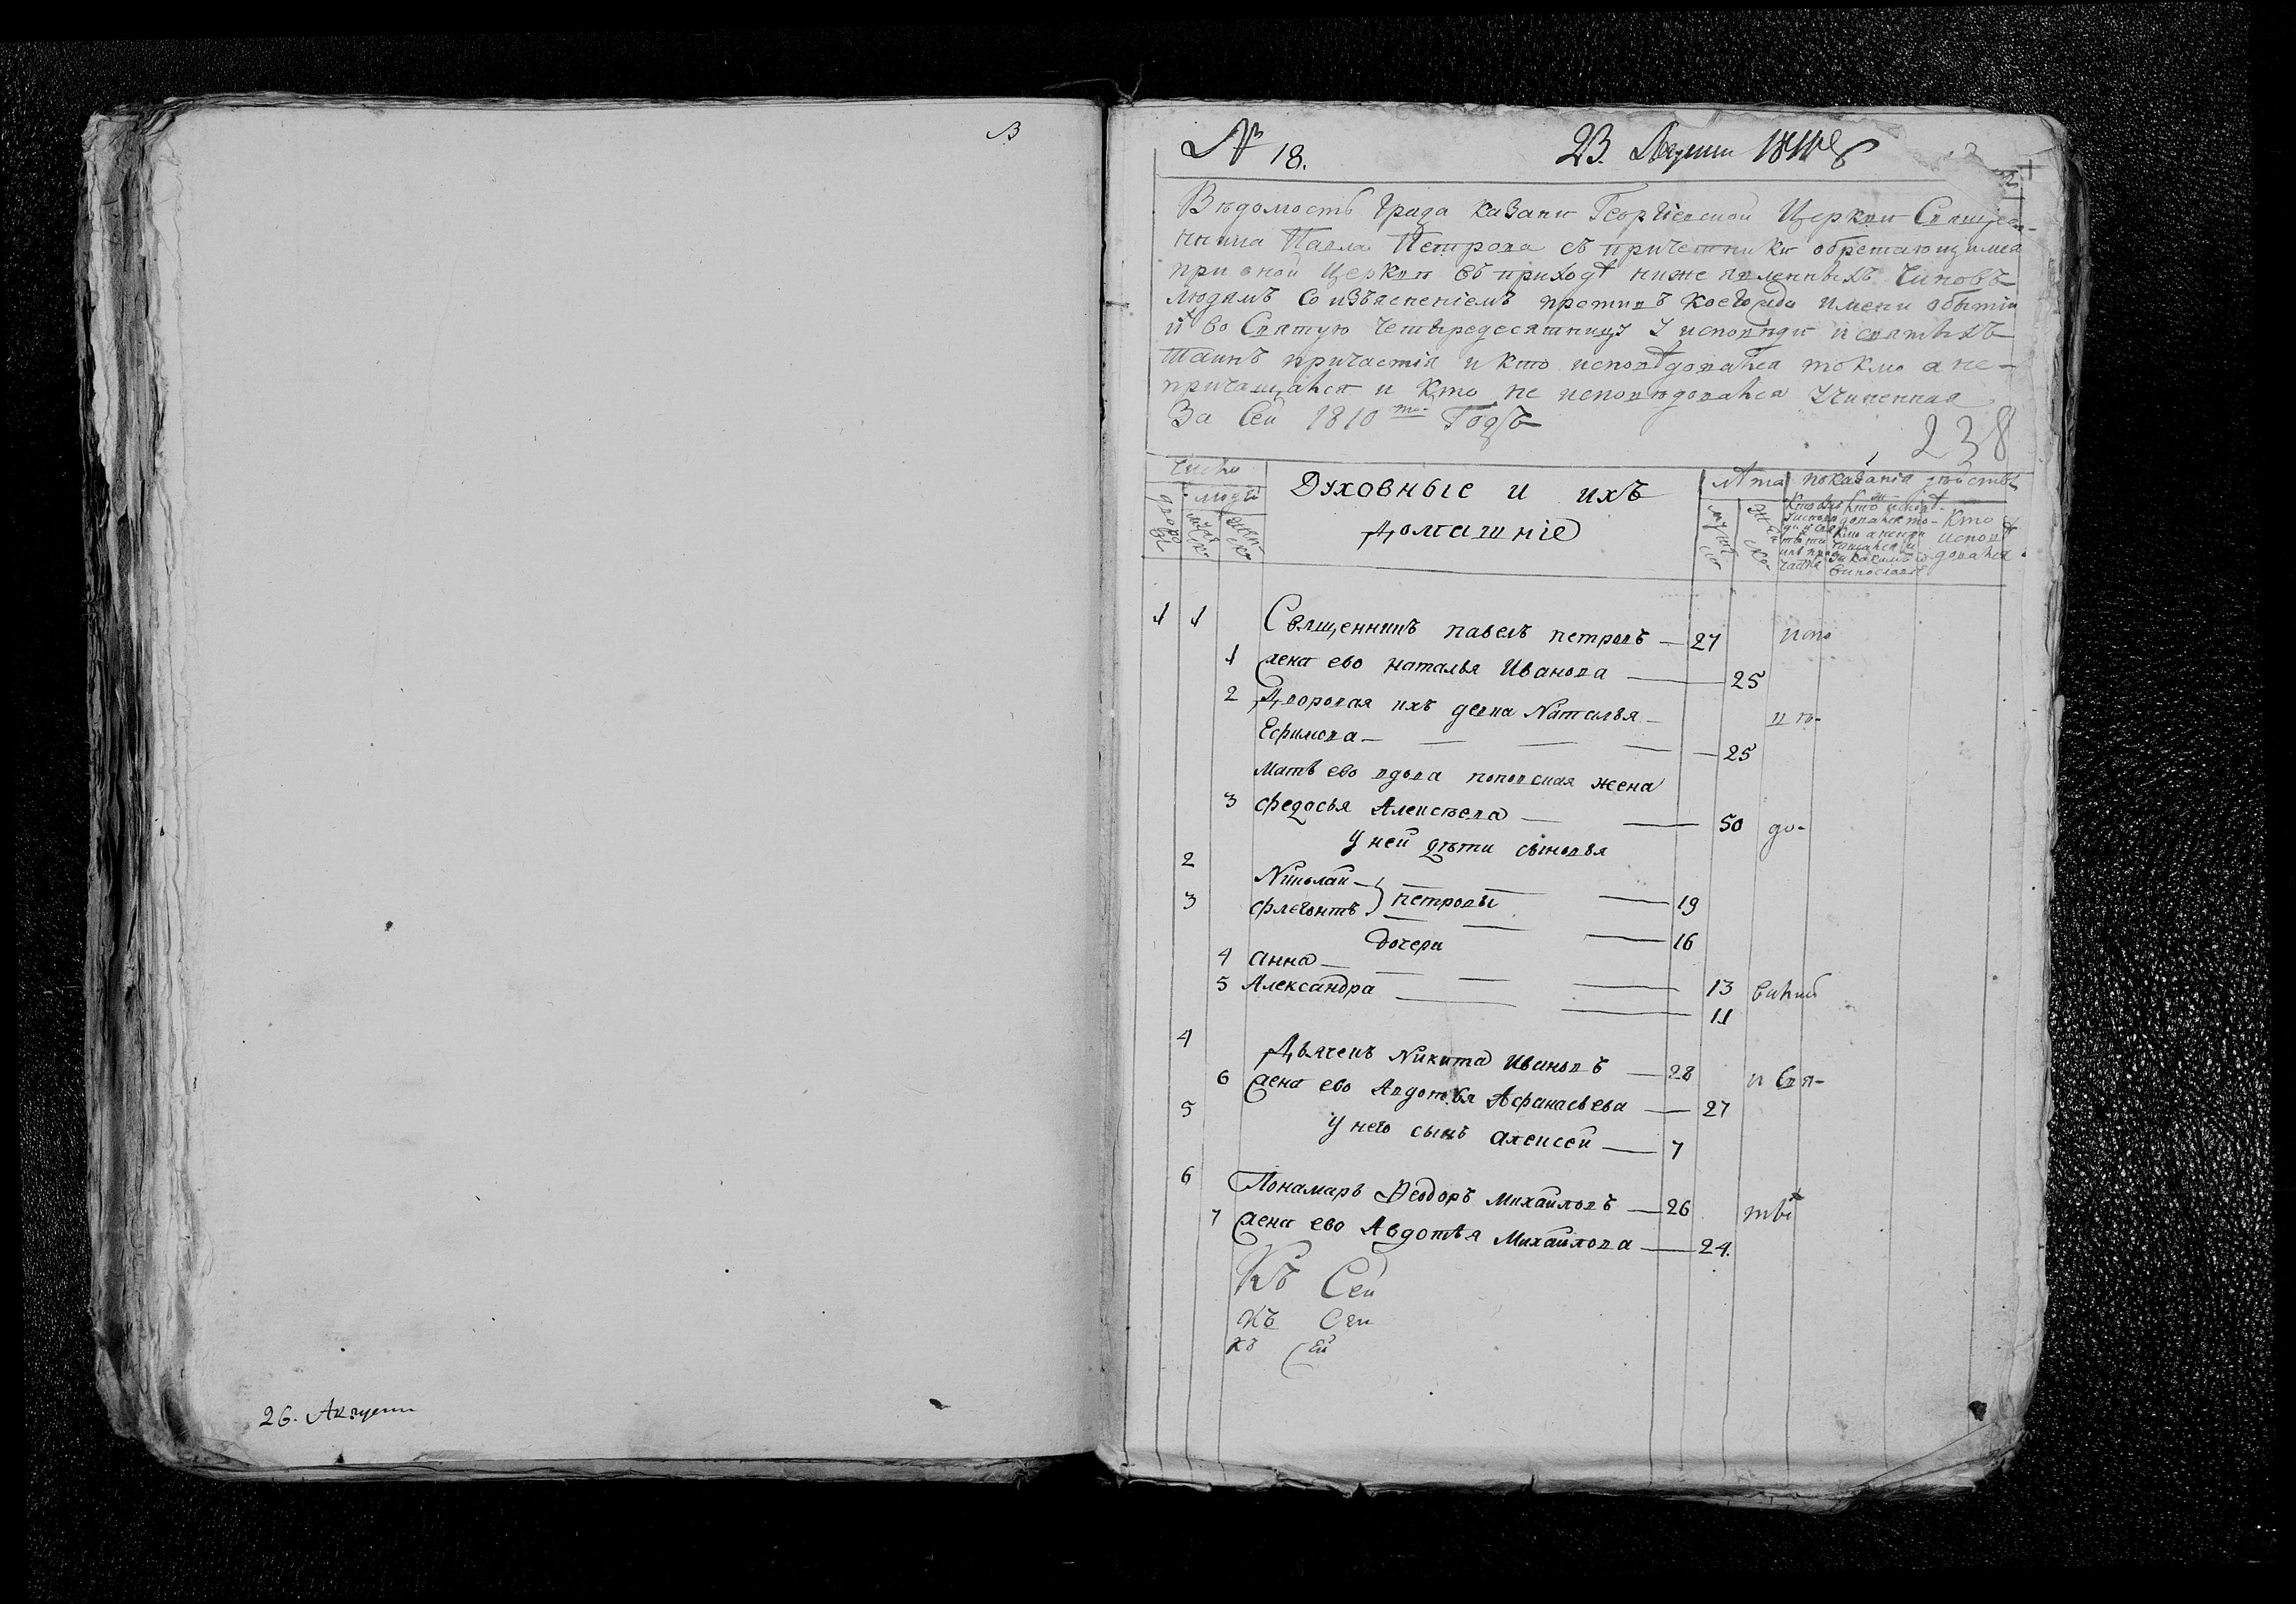 В
26. Августа
№ 18.
23. Августа
Вѣдомость Града Казани Георгіевской Церкви Священ-
ника Павла Петрова съ причетники обретающимся
при оной Церкви въ приходѣ ниже явленныхъ чиновъ
людямъ со изъясненіемъ противъ коегождо имени о бытіи
ихъ во Святую четыредесятницу у исповѣди и святыхъ
таинъ причастія и кто исповѣдовался токмо а не-
причащался и кто не исповѣдовался учиненная
За Сей 1810 го Годъ
238
Число
людей
Духовные и ихъ
домашніе
Лѣта
показанія дѣйства
дворовъ
мужеско
женско
мужеско
женско
кто исповѣдовался
1 1 Священникъ павелъ петровъ — 27
испо
1 жена ево наталья Иванова — 25
2 Дворовая ихъ девка Наталья —
и по-
Ефимова — — — — 25
Мать ево вдова поповская жена
3 федосья Алексѣева — — 50
до-
у ней дѣти сыновья
2 Николай — петровы — 19
3 флегонтъ — — 16
дочери
4 анна — — — 13
5 Александра — — 11
4 Дьячекъ Никита Ивановъ — 28
и Свя-
6 жена ево Авдотья Афанасьева — 27
5 у него сынъ алексей — 7
6 Понамарь Ѳеодоръ Михайловъ — 26
7 жена ево Авдотья Михайлова — 24.
Къ Сей
Къ Сей
къ Сей